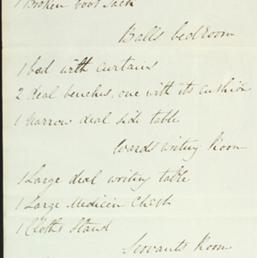 1 Broken boot Jack
Balls bedroom
1 bed with curtains
2 deal benches, one with its cushion
1 narrow deal side table
Wards writing Room
1 Large deal writing table
1 Large Medicin Chest
1 Cloths Stand
Servants Room